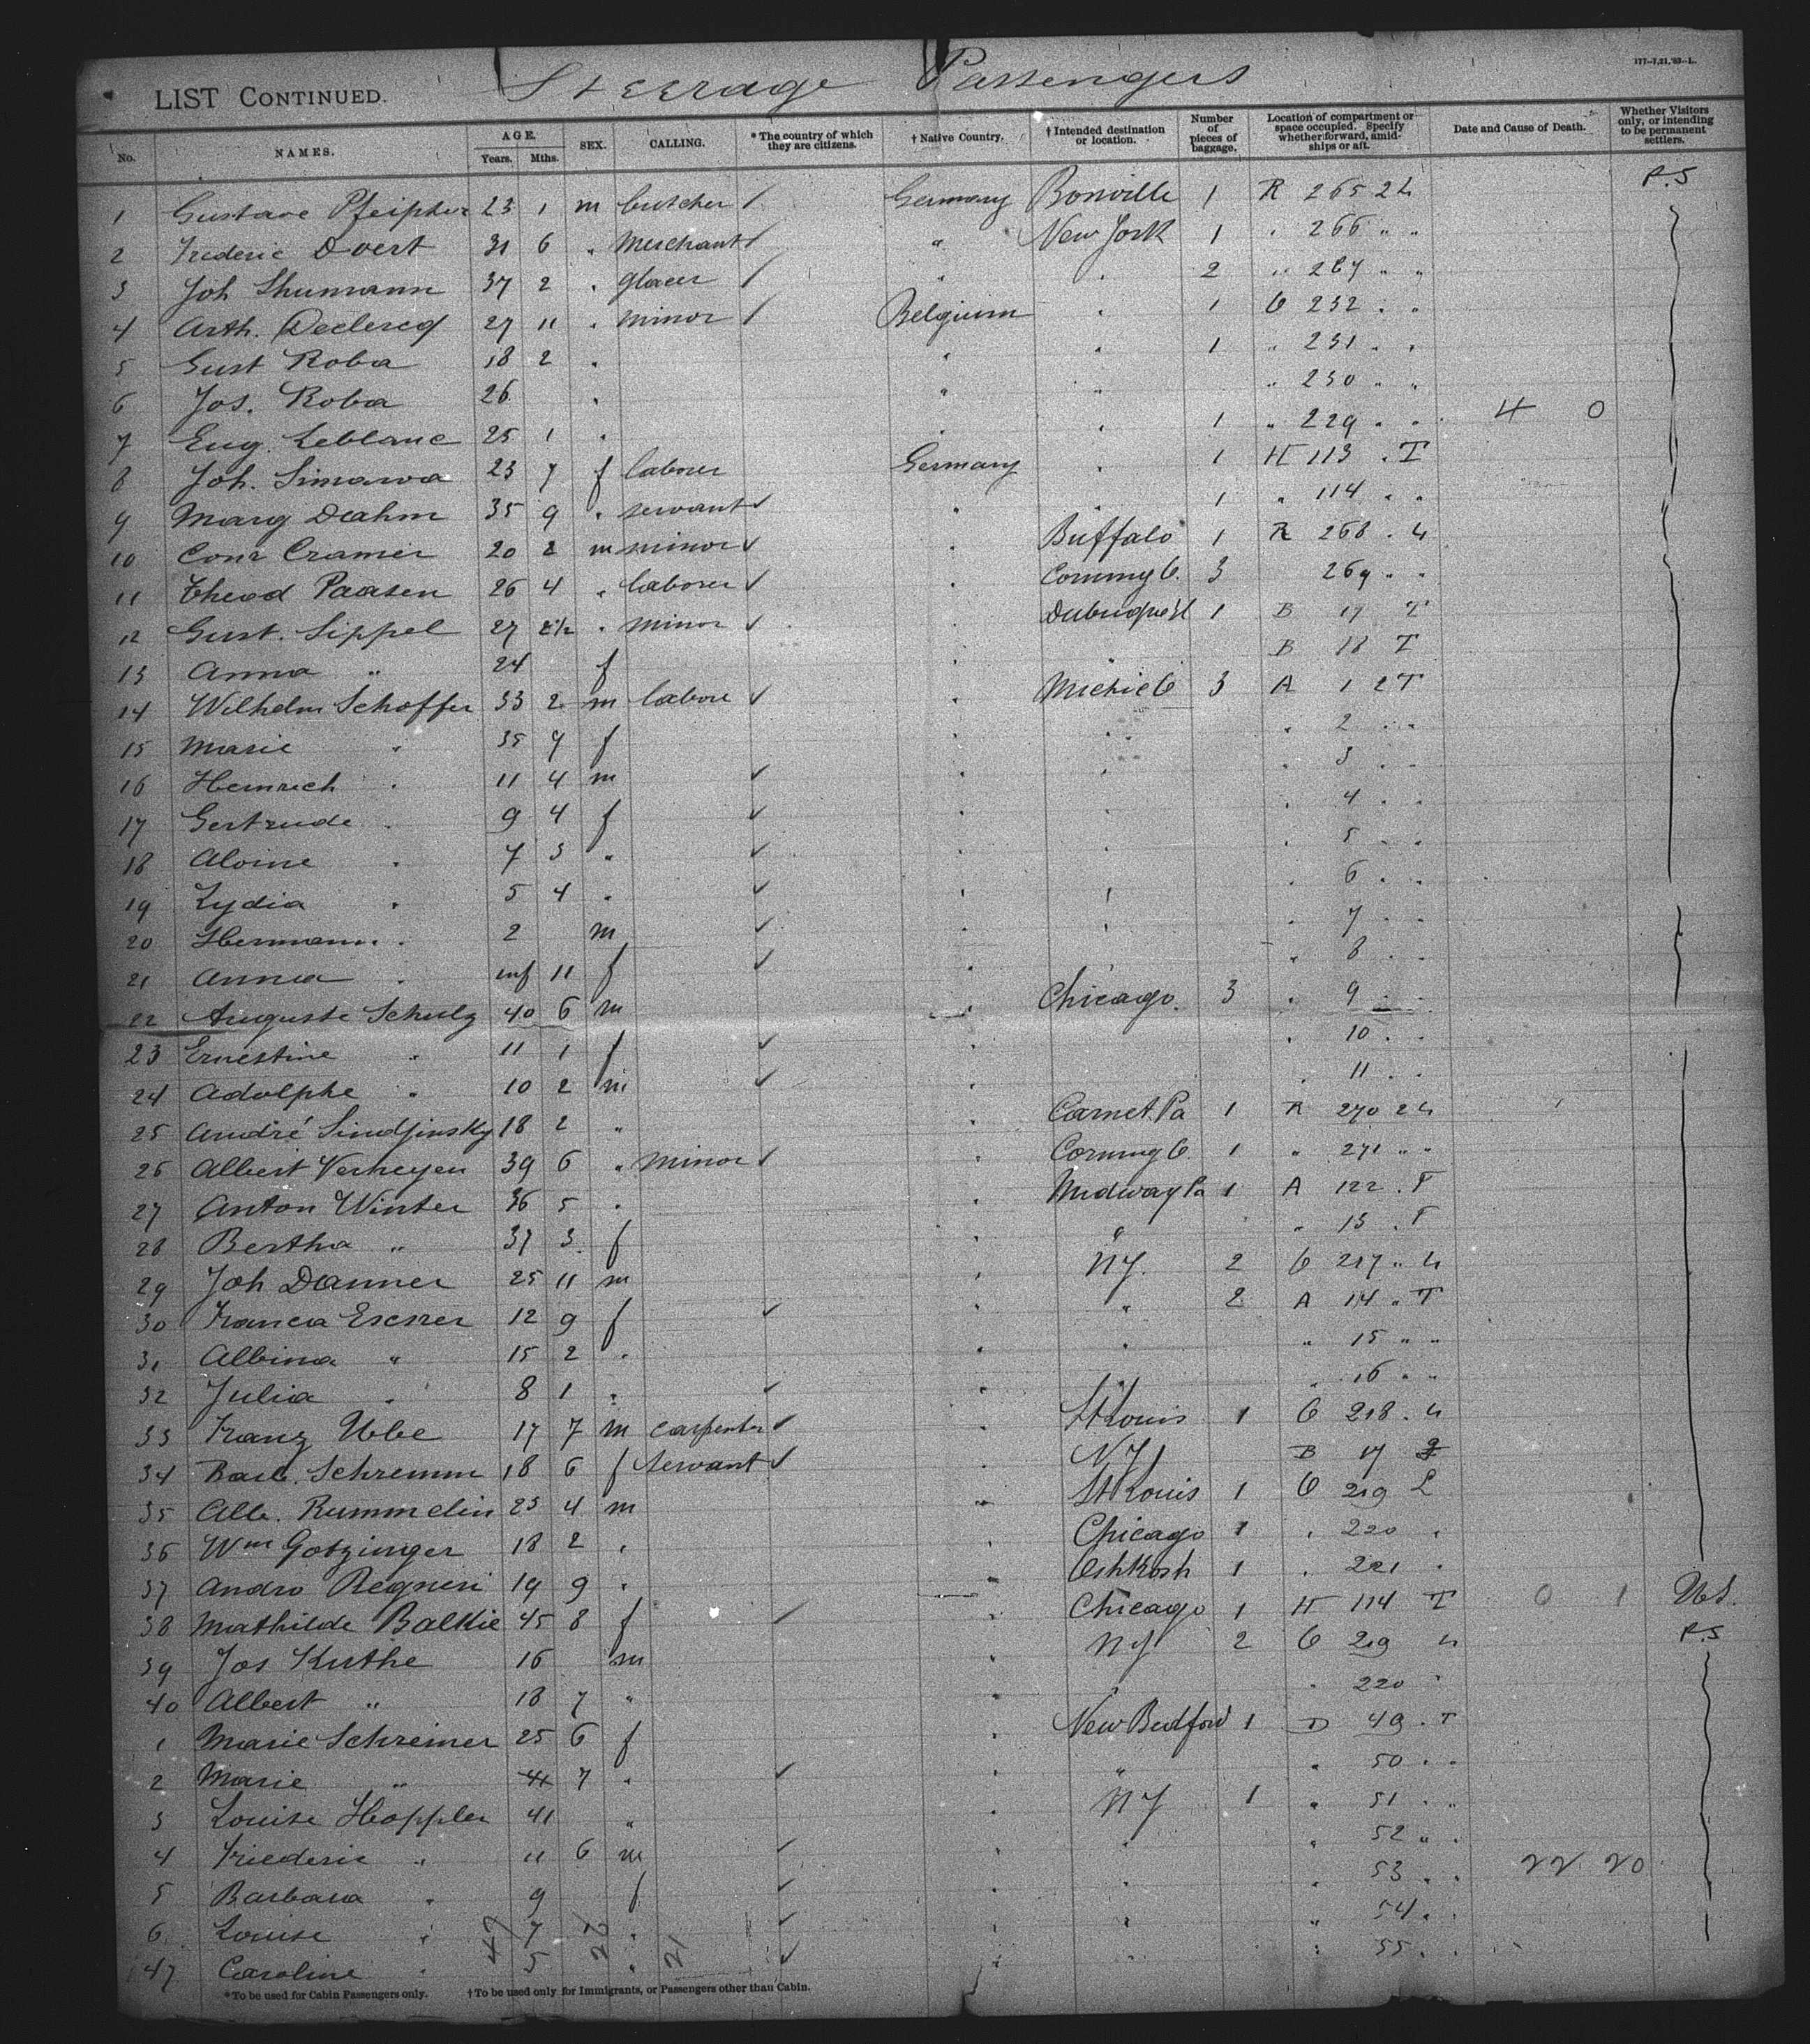 177-7,21,'93-1.
LIST CONTINUED. Steerage Passengers
No. NAMES. AGE. Years. Mths. SEX. CALLING. *The country of which they are citizens. †Native Country. †Intended destination or location. Number of pieces of baggage. Location of compartment or space occupied. Specify whether forward, amidships or aft. Date and Cause of Death. Whether Visitors only, or intending to be permanent settlers.
1 Gustave Pfeipher 23 1 m butcher ✓ Germany Bonville 1 R 265 2 h P.S
2 Frederic Dvert 31 6 " Merchant ✓ " New York 1 " 266 " "
3 Joh Shumann 37 2 " glacer ✓ " " 2 " 267 " "
4 Arth. Declercq 27 11 " minor ✓ Belgium " 1 C 232 " "
5 Gust Roba 18 2 " " " 1 " 231 " "
6 Jos. Roba 26 " " " " 230 " "
7 Eug. Leblanc 25 1 " " " 1 " 229 " " 4 0
8 Joh. Simawa 23 7 f laborer Germany " 1 H 113 " T
9 Marg Dahm 35 9 " servant ✓ " " 1 " 114 " "
10 Conr Cramer 20 2 m minor ✓ " Buffalo 1 R 268 " h
11 Theod Paasen 26 4 " laborer ✓ " Corning O. 3 269 " "
12 Gust. Sippel 27 " minor ✓ " 1 B 17 T
13 Anna " 24 f " " B 18 T
14 Wilhelm Schoffer 33 2 m labore ✓ " 3 A 1 2 T
15 Marie " 35 9 f " " " 2 " "
16 Heinrich " 11 4 m ✓ " " " 3 " "
17 Gertrude " 9 4 f ✓ " " " 4 " "
18 Alvine " 7 3 " ✓ " " " 5 " "
19 Lydia " 5 4 " ✓ " " " 6 " "
20 Hermann " 2 m ✓ " " " 7 " "
21 Anna " inf 11 f ✓ " " 8 " "
22 Auguste Schulz 40 6 m " Chicago. 3 " 9 " "
23 Ernestine " 11 1 f ✓ " " 10 " "
24 Adolphe " 10 2 m ✓ " " 11 " "
25 André Sindjinsky 18 2 " " Carnet Pa 1 R 270 2 h
26 Albert Verheyen 39 6 " minor ✓ " Corning O. 1 " 271 " "
27 Anton Winter 36 5 " " Midway Pa 1 A 122 " T
28 Bertha " 37 3 f " " " 13 " T
29 Joh Danner 25 11 m " NY. 2 C 217 " h
30 Franca Escner 12 9 f ✓ " " 2 A 114 " T
31 Albina " 15 2 " " " " 15 " "
32 Julia " 8 1 " ✓ " " " 16 " "
33 Franz Ube 17 7 m carpenter ✓ " St Louis 1 C 218 " h
34 Barb. Schremm 18 6 f Servant ✓ " NY B 17
35 Alb. Rummelin 23 4 m " St Louis 1 C 219 L
36 Wm Gotzinger 18 2 " " Chicago 1 " 220 "
37 Andro Regneri 19 9 " " Oshkosh 1 " 221 "
38 Mathilde Balkie 45 8 f ✓ " Chicago 1 H 114 T 0 1 U.S.
39 Jos Kuthe 16 m " NY 2 C 219 h P.S
40 Albert " 18 7 " " " " 220 "
1 Marie Schreiner 25 6 f " New Bedford 1 D 49 " T
2 Marie " 7 " ✓ " " " 50 " "
3 Louise Hoppler 41 " " NY 1 " 51 " "
4 Friederic " 11 6 m ✓ " " " 52 " "
5 Barbara " 9 f ✓ " " " 53 " " 22 20
6 Louise " 7 " ✓ " " " 54 " "
47 Caroline " 5 " ✓ " " 55 " "
47 26 21
*To be used for Cabin Passengers only. †To be used only for Immigrants, or Passengers other than Cabin.